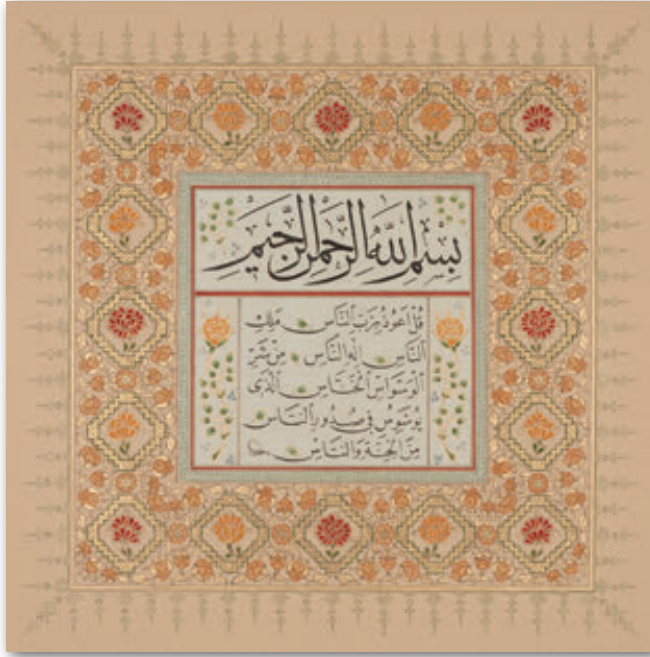 بِسْمِ اللَّهِ الرَّحْمٰنِ الرَّحِيمِ
قُلْ اَعُوذُ بِرَبِّ النَّاسِ مَلِكِ
النَّاسِ اِلٰهِ النَّاسِ مِنْ شَرِّ
الْوَسْوَاسِ الْخَنَّاسِ الَّذِى
يُوَسْوِسُ فِى صُدُورِ النَّاسِ
مِنَ الْجِنَّةِ وَالنَّاسِ